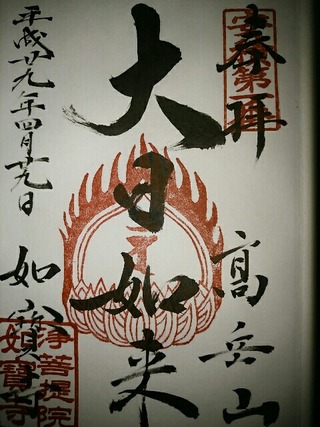 奉拝
高岳山
大日如来
平成廿九年四月廿九日
如寳寺
浄菩提院
如寳寺